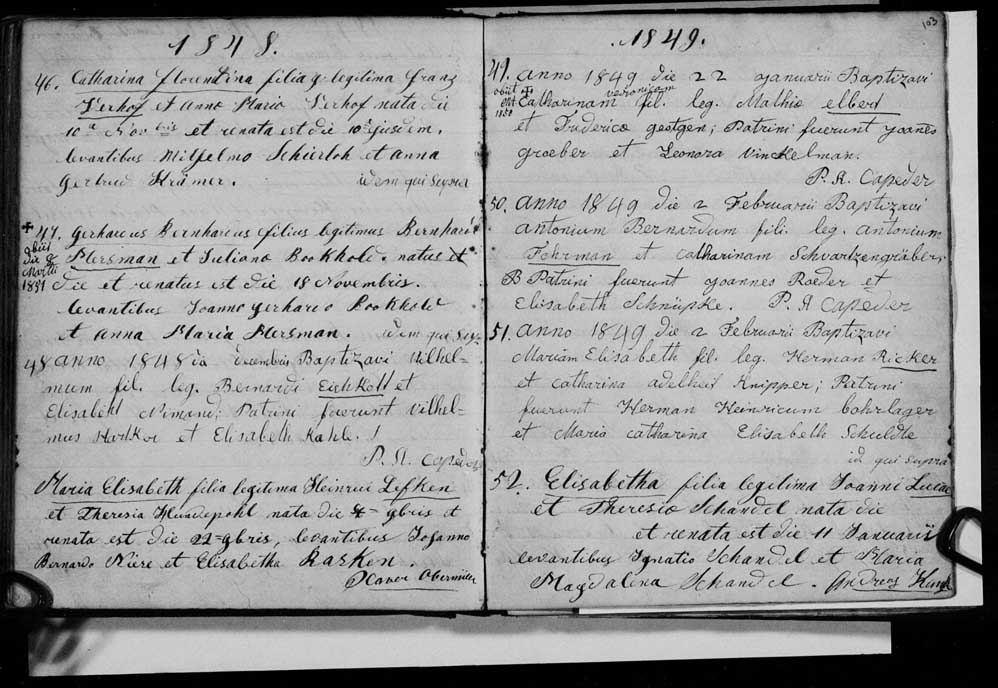 1848.
46. Catharina Florentina filia legitima Franz
Verhof et Anna Maria Verhof nata die
10a Novbris et renata est die ejusdem.
levantibus Wilhelmo Schierloh et Anna
Gertrud Krämer. idem qui supra
✝ 47. Gerhardus Bernhardus filius legitimus Bernhardi
obiit die Martii 1851
Mersman et Juliana Bookhold. natus
die et renatus est die 18 Novembris.
levantibus Joanno Gerhardo Bookhold
et Anna Maria Mersman. idem qui sup.
48 anno 1848 decembris Baptizavi Vilhel=
mum fil. leg. Bernardi Eichholt et
Elisabeth Nimand; Patrini fuerunt Vilhel=
mus Harlkor et Elisabeth Kahle.
P. A. Capeder
Maria Elisabeth filia legitima Heinrici Lefken
et Theresia nata die 4 gbris et
renata est die 22 gbris, levantibus Johanno
Bernardo Niere et Elisabetha Rasken.
Obermüller
103
1849.
49. anno 1849 die 22 Januarii Baptizavi
✝ obiit 1850
veronicam
Catharinam fil. leg. Mathie elbert
et Friderica gestgen; Patrini fuerunt Joanes
groeber et Leonora Vinckelman.
P. A. Capeder
50. anno 1849 die 2 Februarii Baptizavi
antonium Bernardum fili. leg. antonium
Fehrman et catharinam Schvartzengräber;
B Patrini fuerunt Joannes Roeder et
Elisabeth Schnüpke. P. A Capeder
51. anno 1849 die 2 Februarii Baptizavi
Mariam Elisabeth fil. leg. Herman Ricker
et catharina adelheit Knipper; Patrini
fuerunt Herman Heinricum bohrlager
et Maria catharina Elisabeth Schuldte
id. qui supra
52. Elisabetha filia legitima Joanni Lucae
et Theresia Schandel nata die
et renata est die 11 Januarii
levantibus Ignatio Schandel et Maria
Magdalena Schandel. Andreas Kunk